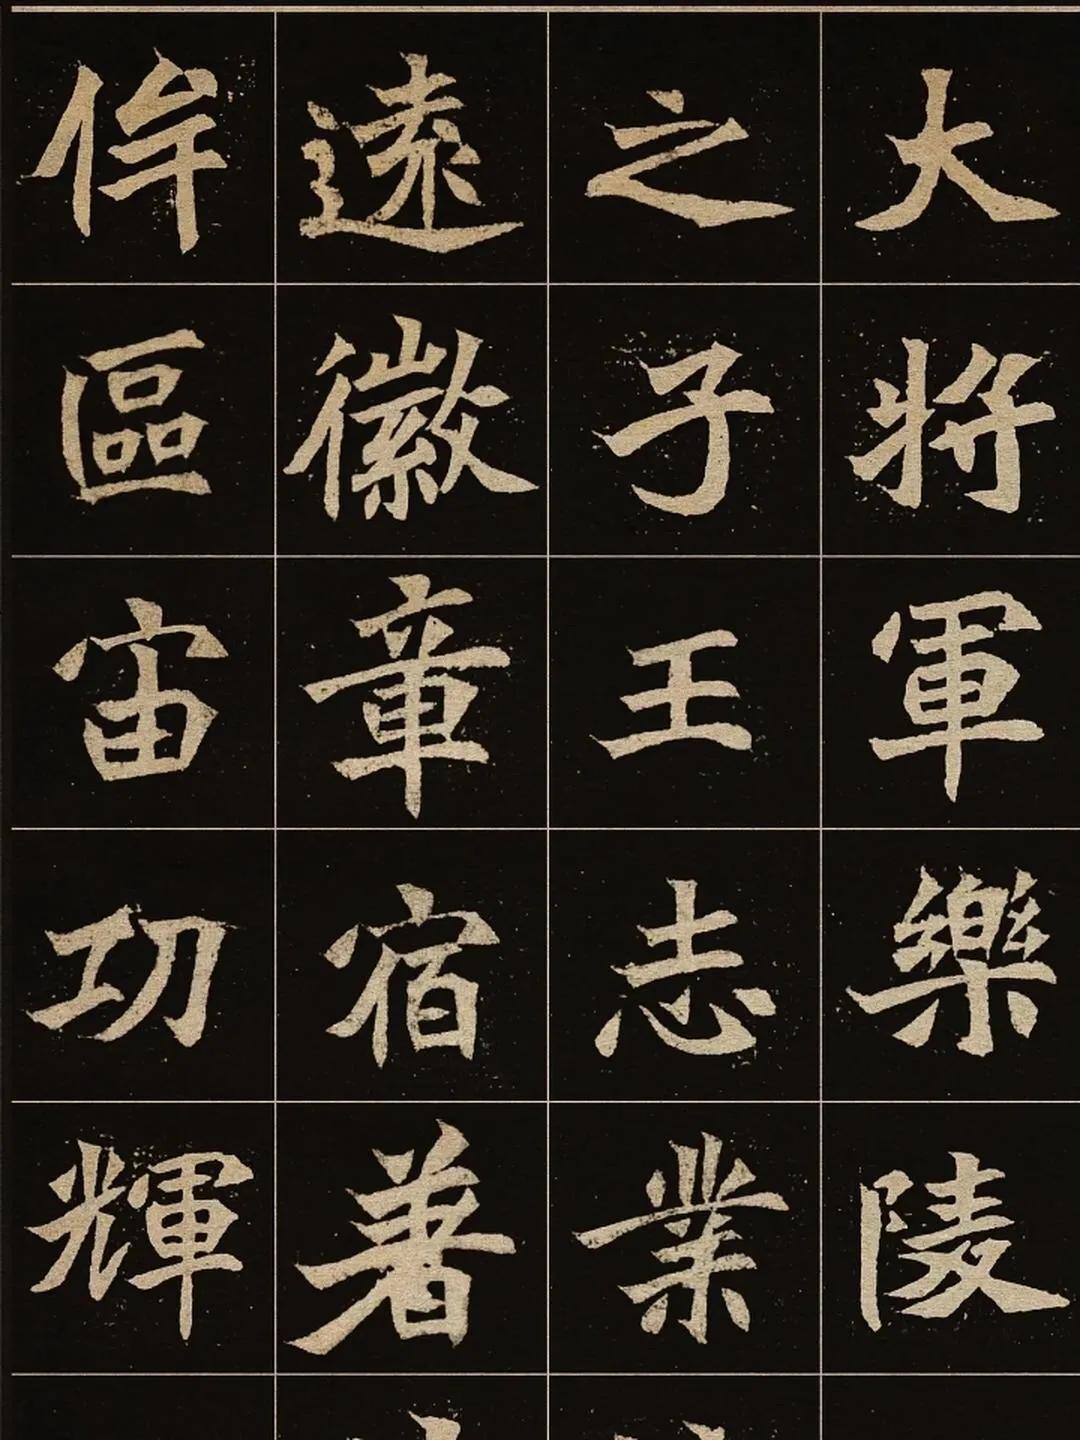 大將軍樂陵
之子王志業
遠徽章宿著
侔區宙功輝